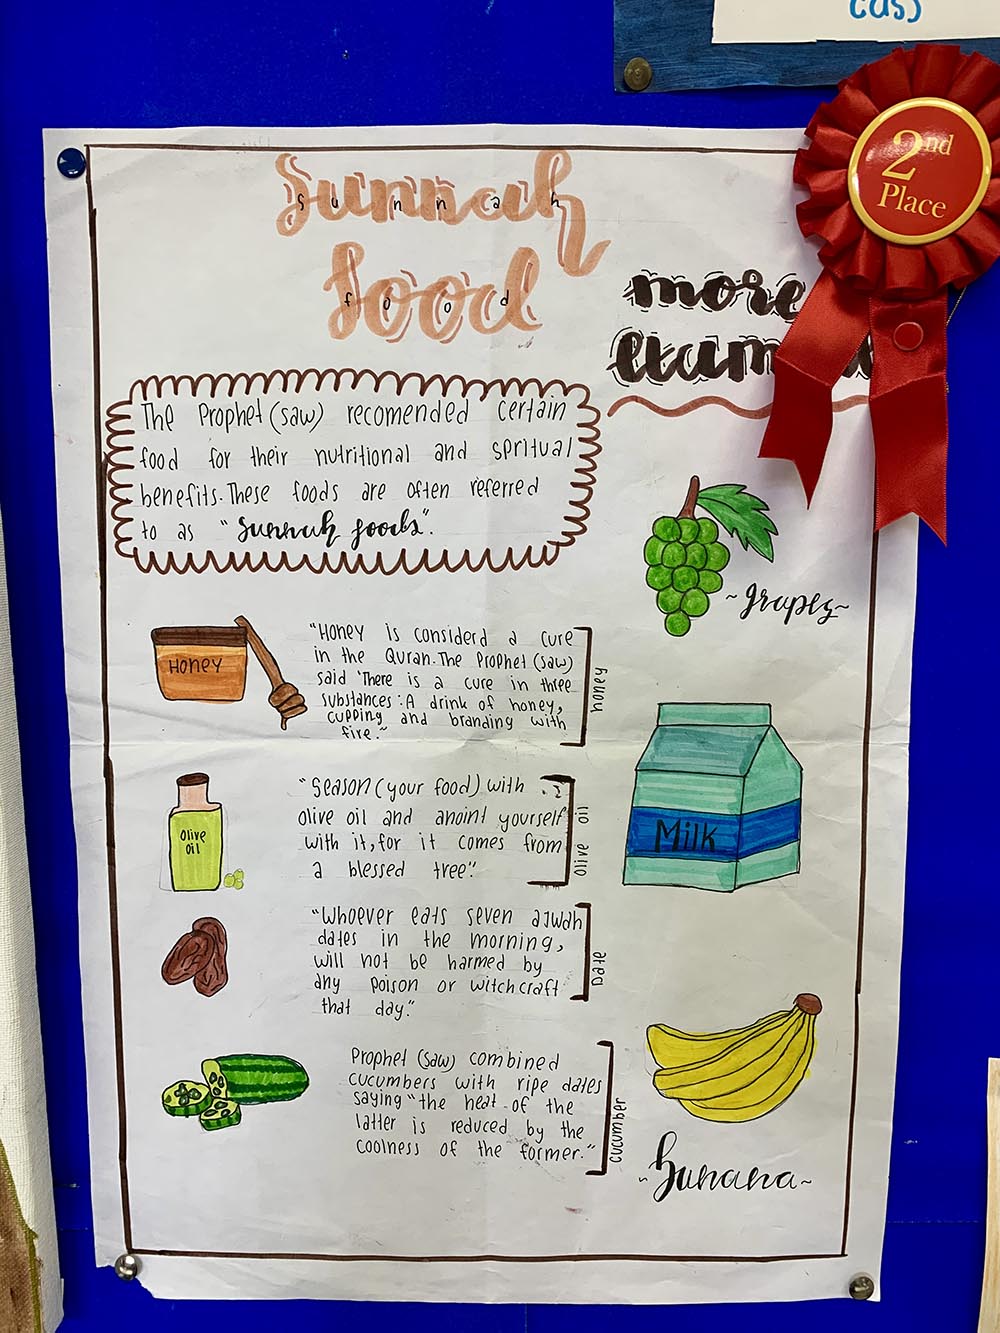 cus)
2nd
Place
Sunnah
sunnah
food
food
more
The Prophet (saw) recomended certain
food for their nutritional and spritual
benefits. These foods are often referred
to as "Sunnah foods".
~grapes~
HONEY
"Honey is considerd a cure
in the Quran. The Prophet (saw)
said 'There is a cure in three
substances: A drink of honey,
cupping and branding with
fire."
honey
Milk
Olive
oil
"Season (your food) with
olive oil and anoint yourself
with it, for it comes from
a blessed tree."
olive oil
"Whoever eats seven ajwah
dates in the morning,
will not be harmed by
any poison or witchcraft
that day."
Date
Prophet (saw) combined
cucumbers with ripe dates
saying "the heat of the
latter is reduced by the
coolness of the former."
cucumber
~banana~